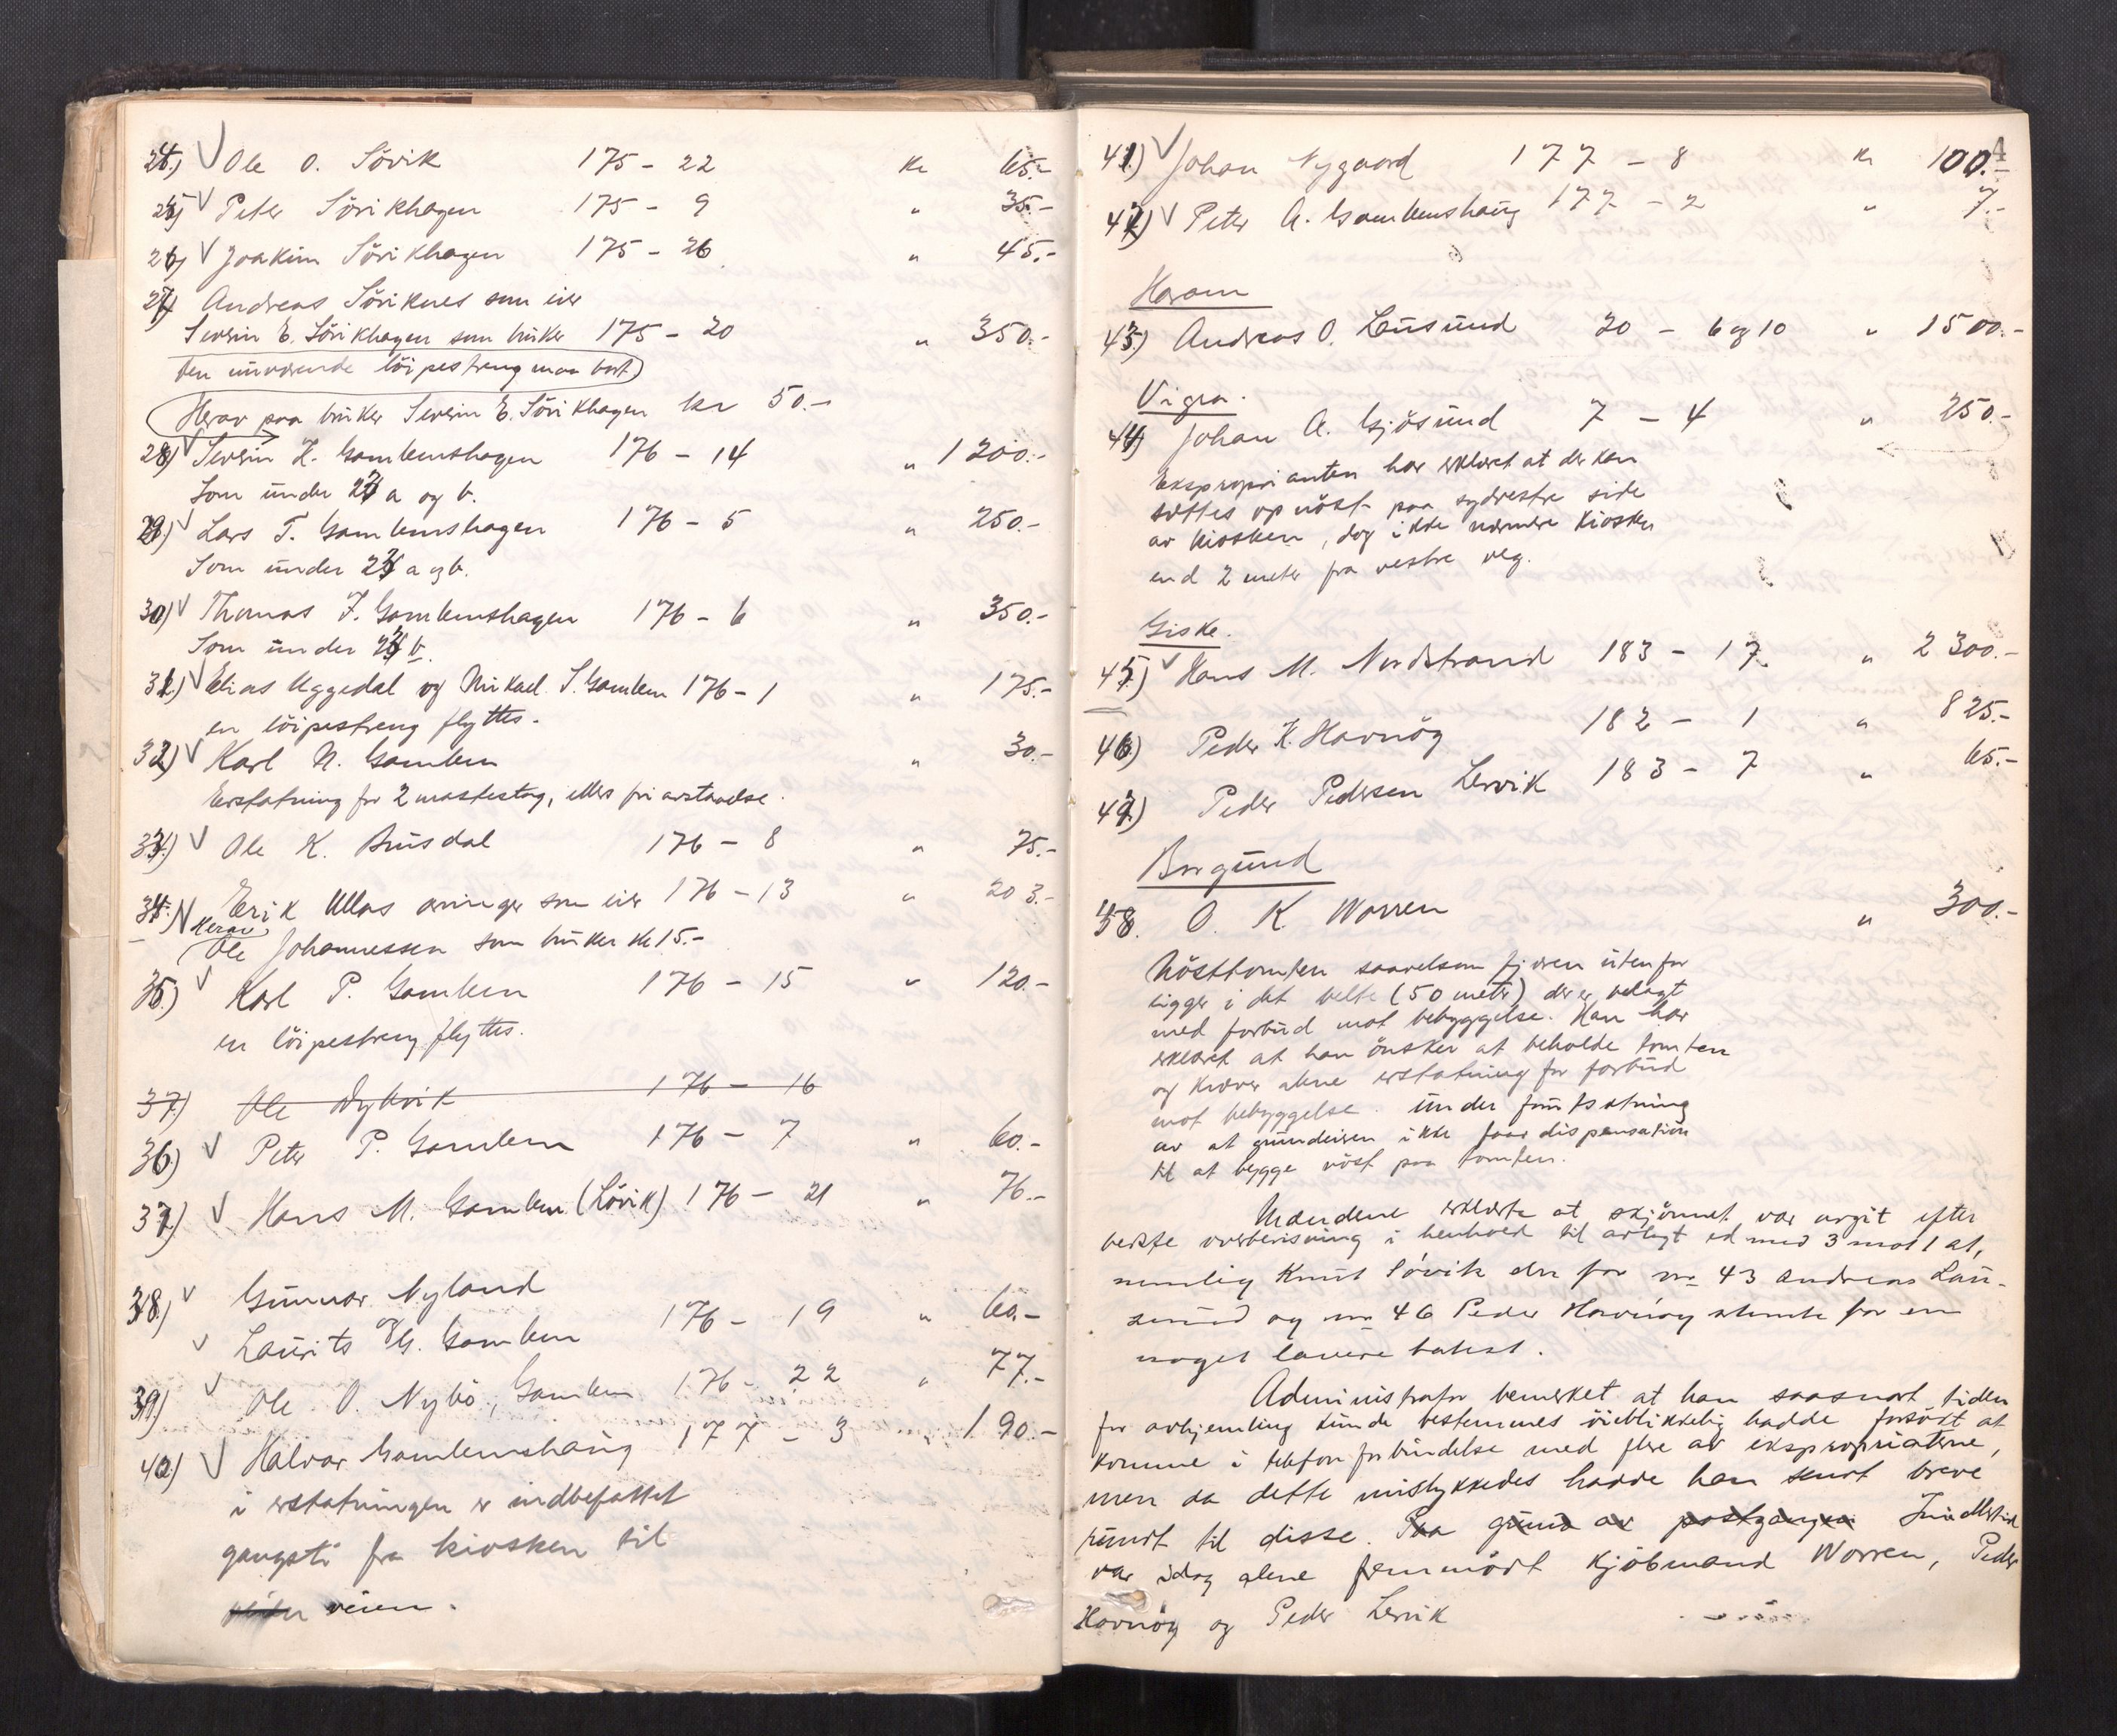 24) V Ole O. Sövik 175 - 22 Kr 65.-
25) V Peter Sövikhagen 175 - 9 " 35.-
26) V Joakim Sövikhagen 175 - 26 " 45.-
27) Andreas Söviknes som eier
Severin E. Sövikhagen som bruker 175 - 20 " 350.-
Den nuværende löipestreng maa bort
Herav paa bruker Severin E. Sövikhagen kr 50.-
28) V Severin K. Gamlemshagen 176 - 14 " 1200.-
Som under 23 a og b.
29) V Lars T. Gamlemshagen 176 - 5 " 250.-
Som under 23 a og b.
30) V Thomas J. Gamlemshagen 176 - 6 " 350.-
Som under 23 b.
31) V Elias Uggedal og Mikael S. Gamlem 176 - 1 " 175.-
en löipestreng flyttes.
32) V Karl N. Gamlem " 30.-
Erstatning for 2 mastestag, ellers fri avstaaelse.
33) V Ole K. Busdal 176 - 8 " 75.-
34) V Erik Ullas arvinger som eier 176 - 13 " 203.-
Herav
Ole Johannessen som bruker kr 15.-
35) V Karl P. Gamlem 176 - 15 " 120.-
en löipestreng flyttes.
37) Ole Dybvik 176 - 16
36) V Peter P. Gamlem 176 - 7 " 60.-
37) V Hans M. Gamlem (Lövik) 176 - 21 " 76.-
38) V Gunnar Nyland
og
V Laurits G. Gamlem 176 - 19 " 60.-
39) V Ole O. Nybö, Gamlem 176 - 22 " 77.-
40) V Halvar Gamlemshaug 177 - 3 " 190.-
i erstatningen er indbefattet
gangsti fra kiosken til
veien.
41) V Johan Nygaard 177 - 8 Kr 100.-
42) V Peter A. Gamlemshaug 177 - 2 " 7.-
Haram
43) Andreas O. Lausund 20 - 6 og 10 " 1500.-
Vigra.
44) Johan A. Gjösund 7 - 4 " 250.-
Eksproprianten har erklæret at der kan
sættes op nöst paa sydvestre side
av kiosken, dog ikke nærmere kiosken
end 2 meter fra vestre veg.
Giske.
45) V Hans M. Nordstrand 183 - 17 " 2300.-
46) Peder K. Havnöy 182 - 1 " 825.-
47) Peder Pedersen Lervik 183 - 7 " 65.-
Borgund
48. O. K. Worren " 300.-
Nösttomten saavelsom fjæren utenfor
ligger i det belte (50 meter) der er belagt
med forbud mot bebyggelse. Han har
erklæret at han önsker at beholde tomten
og kræver alene erstatning for forbud
mot bebyggelse. under forutsætning
av at grundeieren ikke faar dispensation
til at bygge nöst paa tomten.
Mændene erklærte at skjönnet var avgit efter
bedste overbevisning i henhold til avlagt ed med 3 mot 1 at,
nemlig Knut Sövik der for nr 43 Andreas Lau-
sund og nr 46 Peder Havnöy stemte for en
noget lavere takst.
Administrator bemerket at han saasnart tiden
for avhjemling kunde bestemmes öieblikkelig hadde forsökt at
komme i telefonforbindelse med flere av ekspropriaterne,
men da dette mislykkedes hadde han sendt breve
rundt til disse. Paa grund av postgangen Imidlertid
var idag alene fremmödt kjöbmand Worren, Peder
Havnöy og Peder Lervik